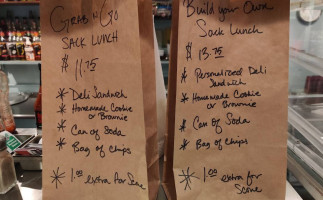 Grab n Go
Sack Lunch
$ 11.75
* Deli Sandwich
* Homemade Cookie
or Brownie
* Can of Soda
* Bag of Chips
* 1.00 extra for Scone
Build your Own
Sack Lunch
$ 13.75
* Personalized Deli
Sandwich
* Homemade Cookie
or Brownie
* Can of Soda
* Bag of Chips
* 1.00 extra for
Scone